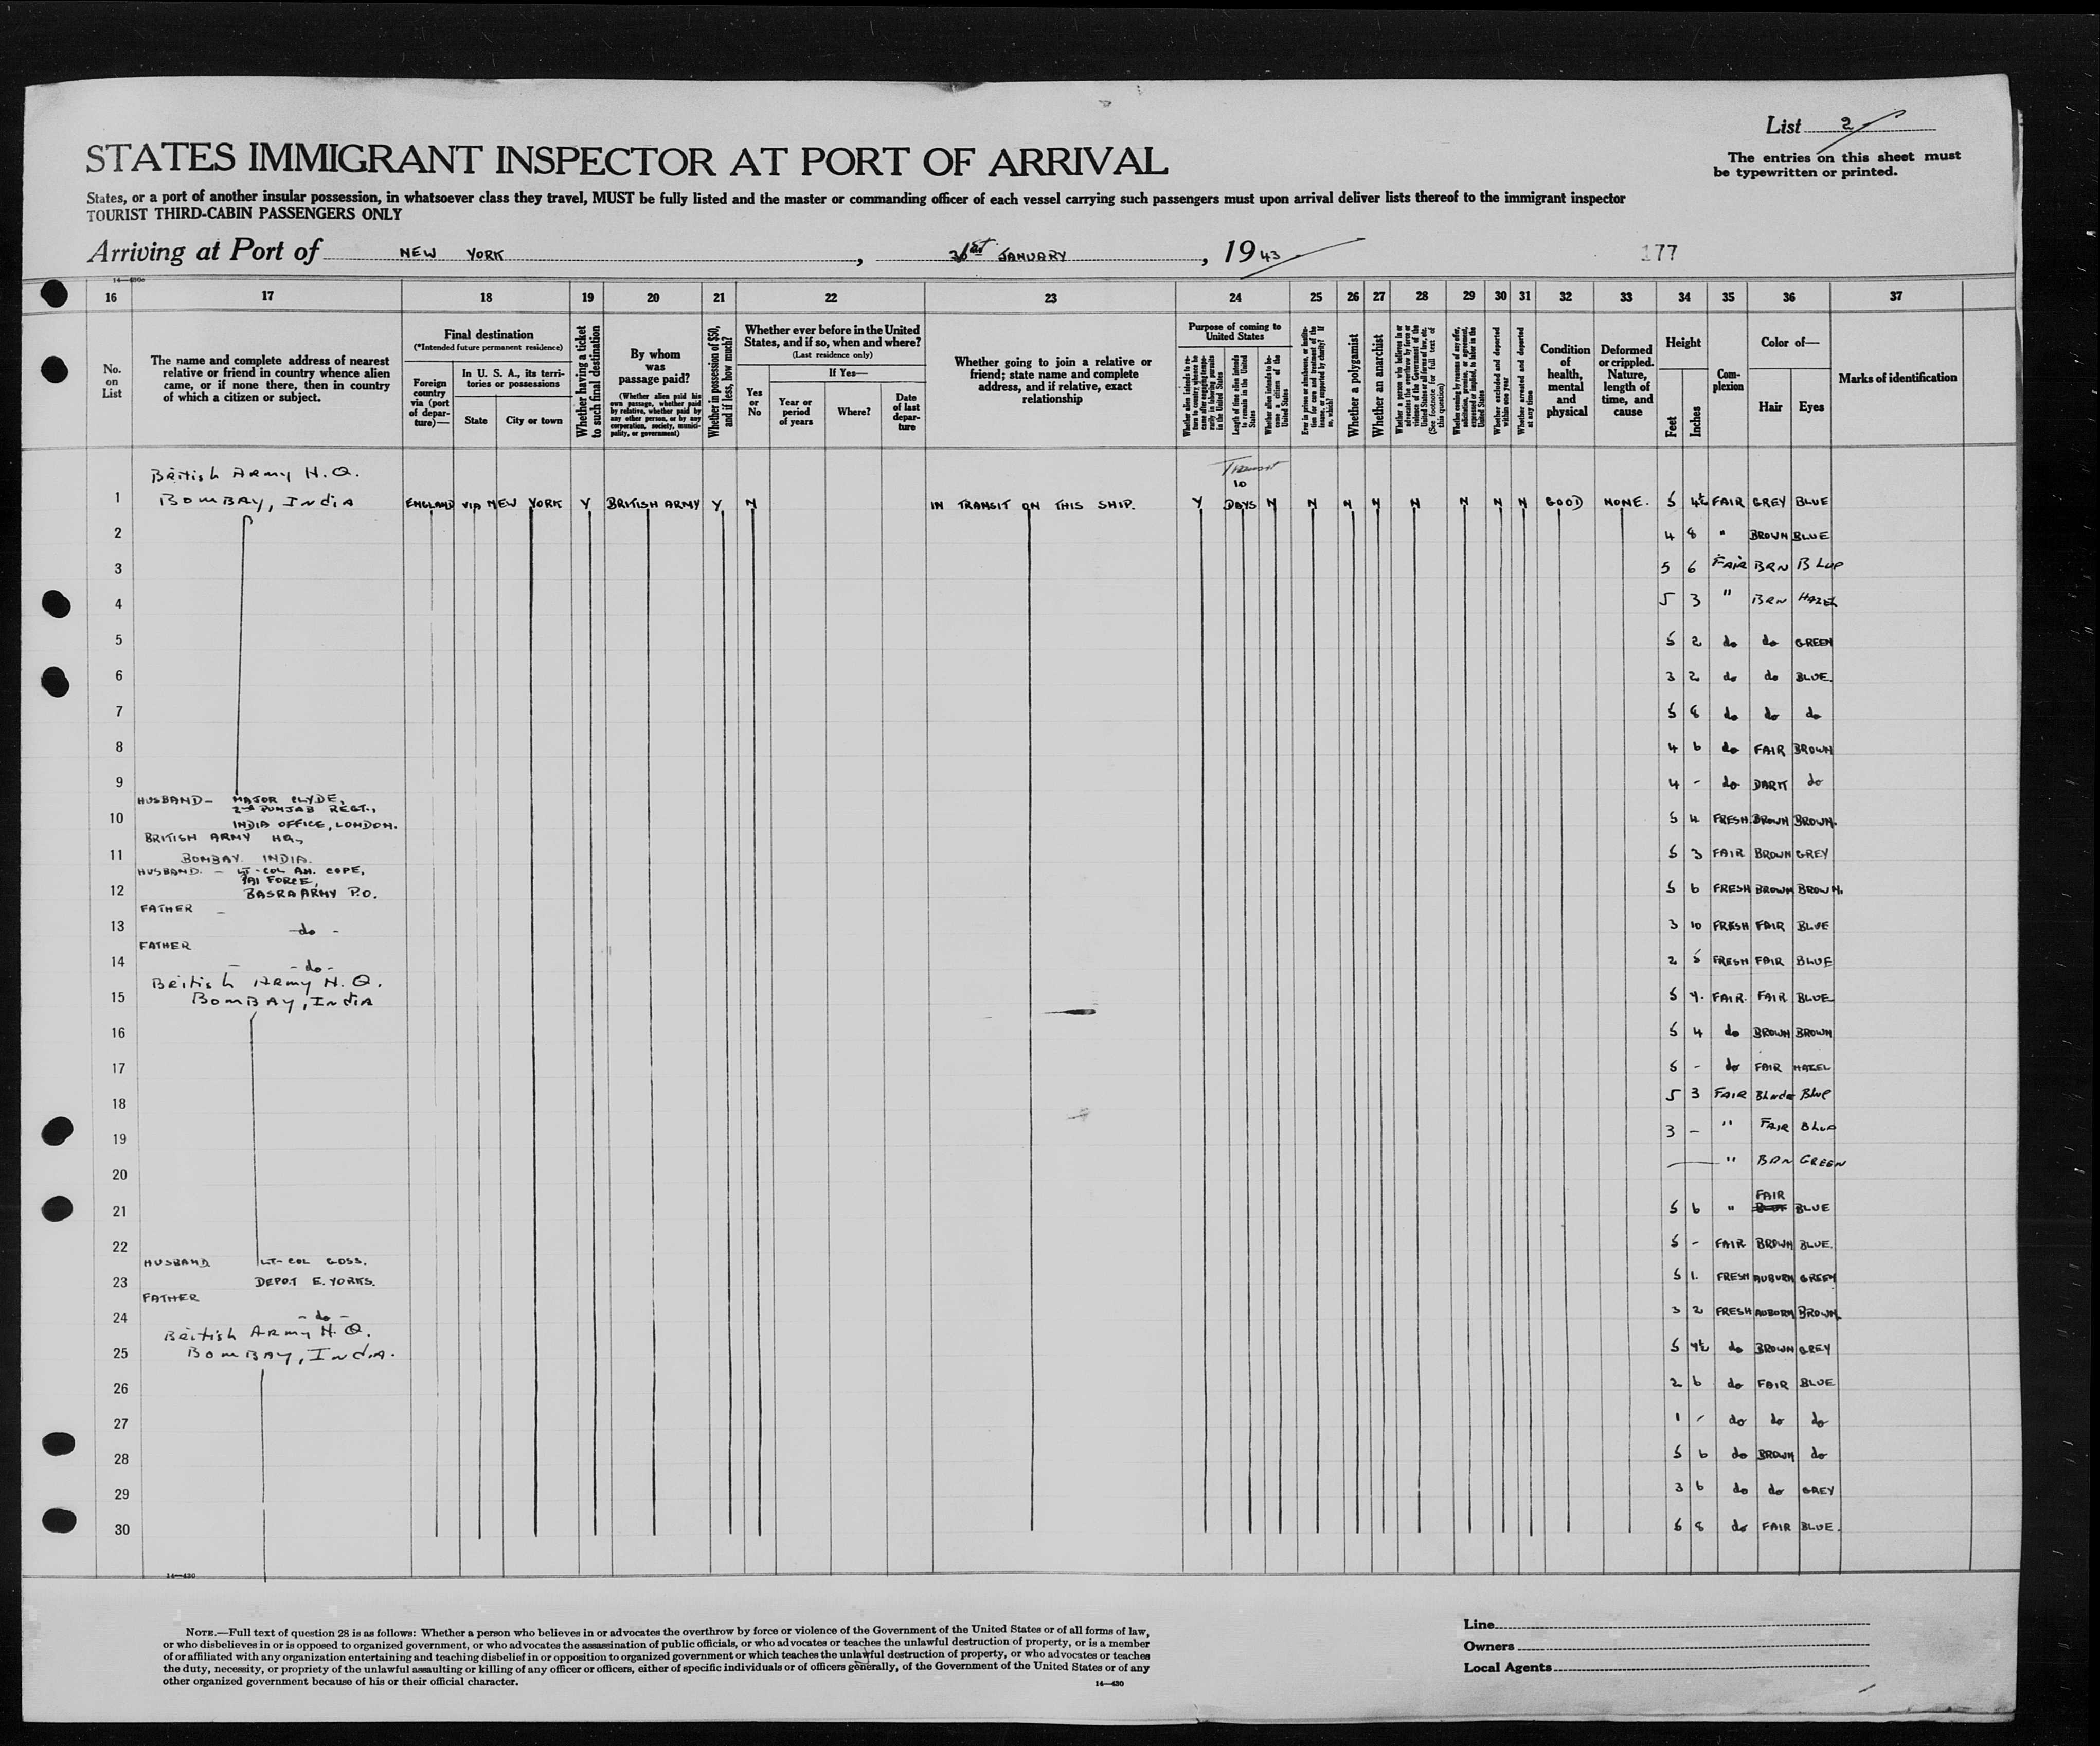 List 2
The entries on this sheet must
be typewritten or printed.
STATES IMMIGRANT INSPECTOR AT PORT OF ARRIVAL
States, or a port of another insular possession, in whatsoever class they travel, MUST be fully listed and the master or commanding officer of each vessel carrying such passengers must upon arrival deliver lists thereof to the immigrant inspector
TOURIST THIRD-CABIN PASSENGERS ONLY
Arriving at Port of NEW YORK, JANUARY, 1943
177
16 17 18 19 20 21 22 23 24 25 26 27 28 29 30 31 32 33 34 35 36 37
No. on List
The name and complete address of nearest relative or friend in country whence alien came, or if none there, then in country of which a citizen or subject.
Final destination
(*Intended future permanent residence)
Foreign country via (port of departure)—
In U. S. A., its territories or possessions
State
City or town
Whether having a ticket to such final destination
By whom was passage paid?
(Whether alien paid his own passage, whether paid by relative, whether paid by any other person, or by any corporation, society, municipality, or government)
Whether in possession of $50, and if less, how much?
Whether ever before in the United States, and if so, when and where?
(Last residence only)
Yes or No
If Yes—
Year or period of years
Where?
Date of last departure
Whether going to join a relative or friend; state name and complete address, and if relative, exact relationship
Purpose of coming to United States
Length of time alien intends to remain in the United States
Whether alien intends to become a citizen of the United States
Whether a polygamist
Whether an anarchist
(See footnote for full text of this question)
Whether excluded and deported within one year
Whether arrested and deported at any time
Condition of health, mental and physical
Deformed or crippled. Nature, length of time, and cause
Height
Feet
Inches
Complexion
Color of—
Hair
Eyes
Marks of identification
British Army H.Q.
Transit
10
1 BOMBAY, INDIA ENGLAND VIA NEW YORK Y BRITISH ARMY Y N IN TRANSIT ON THIS SHIP. Y DAYS N N N N N N N N GOOD NONE. 5 4½ FAIR GREY BLUE
2 4 8 " BROWN BLUE
3 5 6 FAIR BRN BLUE
4 5 3 " BRN HAZEL
5 5 2 do do GREEN
6 3 2 do do BLUE.
7 5 8 do do do
8 4 6 do FAIR BROWN
9 4 - do DARK do
HUSBAND - MAJOR CLYDE,
2nd PUNJAB REGT.,
10 INDIA OFFICE, LONDON. 5 4 FRESH BROWN BROWN.
BRITISH ARMY HQ,
11 BOMBAY. INDIA. 5 3 FAIR BROWN GREY
HUSBAND. - LT-COL AH. COPE,
PAI FORCE,
12 BASRA ARMY P.O. 5 6 FRESH BROWN BROWN.
FATHER -
13 -do- 3 10 FRESH FAIR BLUE
FATHER
14 -do- 2 5 FRESH FAIR BLUE
British Army H.Q.
15 BOMBAY, INDIA 5 4. FAIR. FAIR BLUE
16 5 4 do BROWN BROWN
17 5 - do FAIR HAZEL
18 5 3 FAIR Blnde Blue
19 3 - " FAIR Blue
20 — " BRN GREEN
FAIR
21 5 6 " BLUE
22 5 - FAIR BROWN BLUE.
HUSBAND LT-COL GOSS.
23 DEPOT E. YORKS. 5 1. FRESH AUBURN GREEN
FATHER
24 -do- 3 2 FRESH AUBURN BROWN.
British Army H.Q.
25 BOMBAY, INDIA. 5 4½ do BROWN GREY
26 2 6 do FAIR BLUE
27 1 - do do do
28 5 6 do BROWN do
29 3 6 do do GREY
30 5 8 do FAIR BLUE.
14—430
NOTE.—Full text of question 28 is as follows: Whether a person who believes in or advocates the overthrow by force or violence of the Government of the United States or of all forms of law,
or who disbelieves in or is opposed to organized government, or who advocates the assassination of public officials, or who advocates or teaches the unlawful destruction of property, or is a member
of or affiliated with any organization entertaining and teaching disbelief in or opposition to organized government or which teaches the unlawful destruction of property, or who advocates or teaches
the duty, necessity, or propriety of the unlawful assaulting or killing of any officer or officers, either of specific individuals or of officers generally, of the Government of the United States or of any
other organized government because of his or their official character.
14—430
Line
Owners
Local Agents